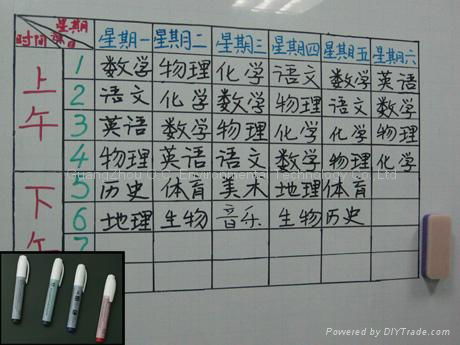 星期
时间
星期一 星期二 星期三 星期四 星期五 星期六
上午
1 数学 物理 化学 语文 数学 英语
2 语文 化学 数学 物理 语文 数学
3 英语 数学 物理 化学 化学 物理
4 物理 英语 语文 数学 物理 化学
Guangzhou Environmental Technology Co.,Ltd
下午
5 历史 体育 美术 地理 体育
6 地理 生物 音乐 生物 历史
7
Powered by DIYTrade.com